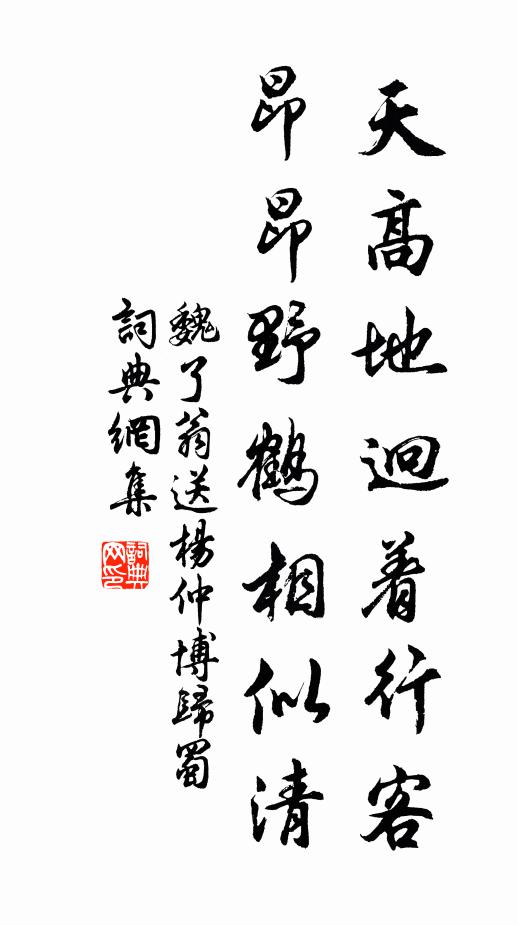 天高地迥着行客
昂昂野鶴相似清
魏了翁送楊仲博歸蜀
詞典網集
詞典网印